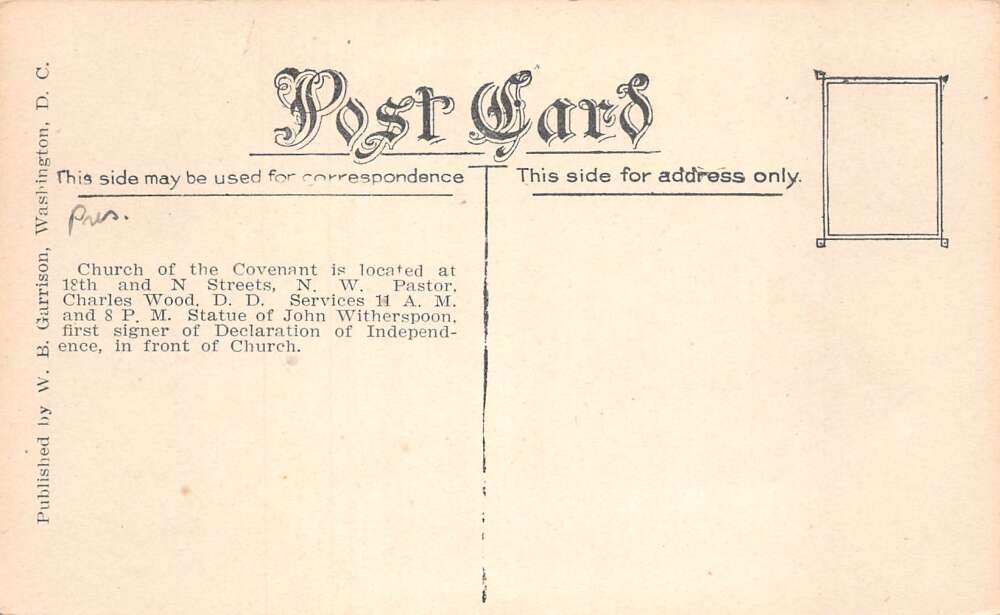 Post Card
This side may be used for correspondence
This side for address only.
Pres.
Church of the Covenant is located at
18th and N Streets, N. W. Pastor,
Charles Wood, D. D. Services 11 A. M.
and 8 P. M. Statue of John Witherspoon,
first signer of Declaration of Independ-
ence, in front of Church.
Published by W. B. Garrison, Washington, D. C.